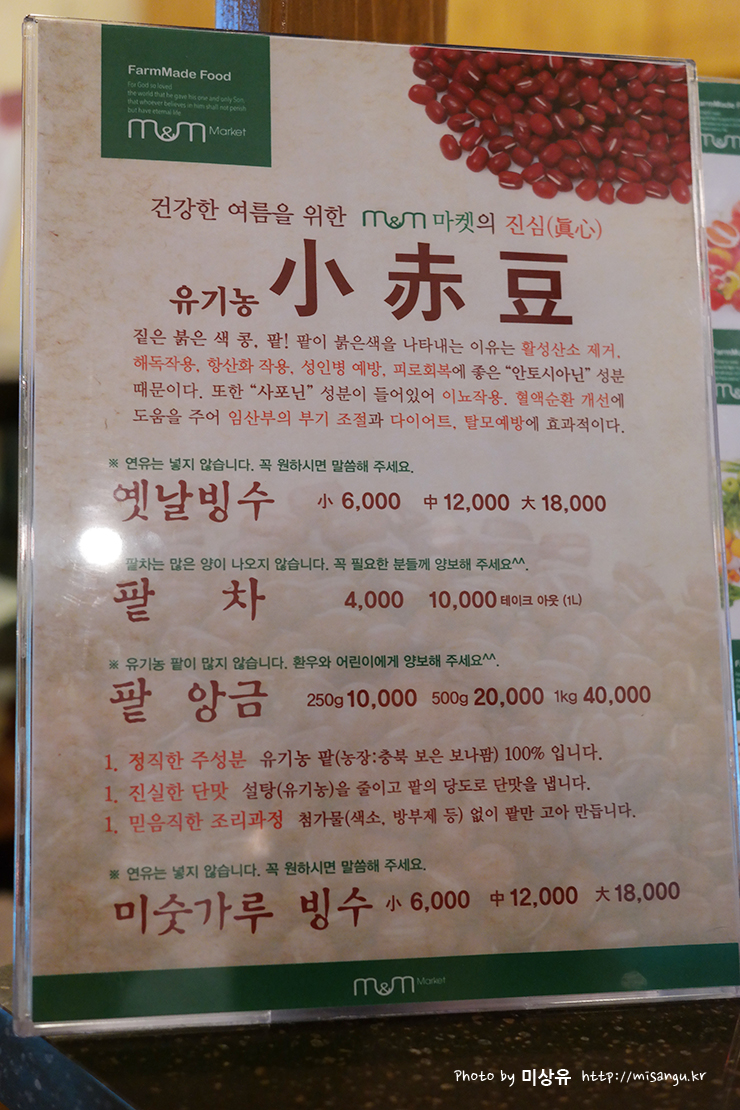 FarmMade Food
For God so loved
the world that he gave his one and only Son,
that whoever believes in him shall not perish
but have eternal life.
m&m Market
건강한 여름을 위한 m&m 마켓의 진심(眞心)
유기농 小赤豆
짙은 붉은 색 콩, 팥! 팥이 붉은색을 나타내는 이유는 활성산소 제거,
해독작용, 항산화 작용, 성인병 예방, 피로회복에 좋은 “안토시아닌” 성분
때문이다. 또한 “사포닌” 성분이 들어있어 이뇨작용. 혈액순환 개선에
도움을 주어 임산부의 부기 조절과 다이어트, 탈모예방에 효과적이다.
※ 연유는 넣지 않습니다. 꼭 원하시면 말씀해 주세요.
옛날빙수 小 6,000 中 12,000 大 18,000
팥차는 많은 양이 나오지 않습니다. 꼭 필요한 분들께 양보해 주세요^^.
팥 차 4,000 10,000 테이크 아웃 (1L)
※ 유기농 팥이 많지 않습니다. 환우와 어린이에게 양보해 주세요^^.
팥 앙금 250g 10,000 500g 20,000 1kg 40,000
1. 정직한 주성분 유기농 팥(농장:충북 보은 보나팜) 100% 입니다.
1. 진실한 단맛 설탕(유기농)을 줄이고 팥의 당도로 단맛을 냅니다.
1. 믿음직한 조리과정 첨가물(색소, 방부제 등) 없이 팥만 고아 만듭니다.
※ 연유는 넣지 않습니다. 꼭 원하시면 말씀해 주세요.
미숫가루 빙수 小 6,000 中 12,000 大 18,000
m&m Market
Photo by 미상유 http://misangu.kr